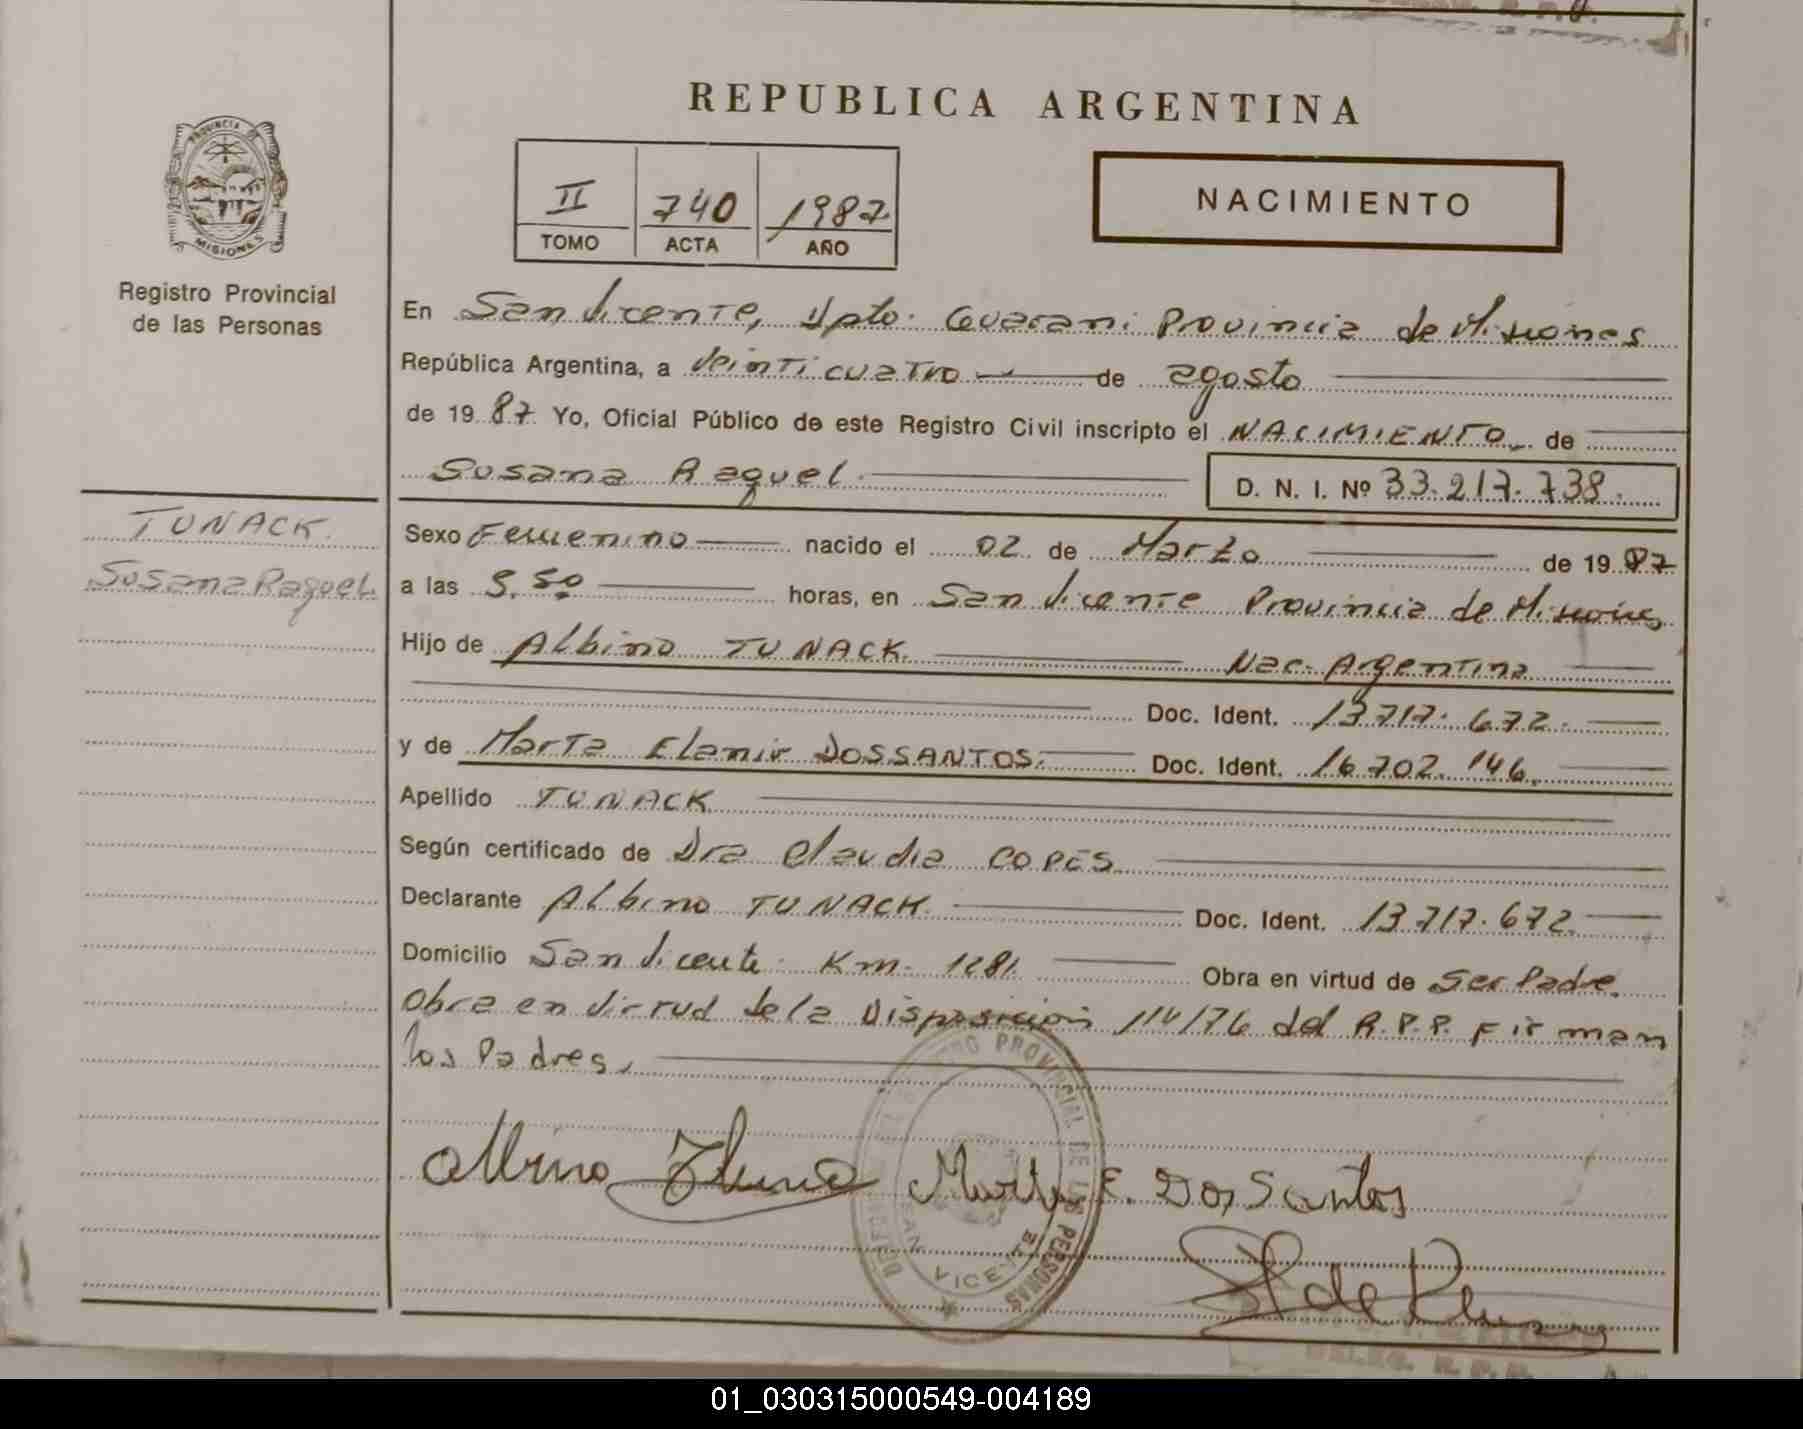 REPUBLICA ARGENTINA
PROVINCIA DE
MISIONES
Registro Provincial
de las Personas
II 740 1987
TOMO ACTA AÑO
NACIMIENTO
En San Vicente, Dpto. Guarani Provincia de Misiones
República Argentina, a veinticuatro de agosto
de 1987 Yo, Oficial Público de este Registro Civil inscripto el NACIMIENTO de
Susana Raquel. D. N. I. Nº 33.217.738.
TUNACK.
Susana Raquel.
Sexo Femenino nacido el 02 de Marzo de 1987
a las horas, en San Vicente Provincia de Misiones
Hijo de Albino TUNACK Nac. Argentina
Doc. Ident. 13.717.672.
y de Marta Elenir DOSSANTOS. Doc. Ident. 16.702.146.
Apellido TUNACK
Según certificado de Dra Claudia COPES
Declarante Albino TUNACK. Doc. Ident. 13.717.672.
Domicilio San Vicente Km. 1281. Obra en virtud de Ser Padre.
Obra en Virtud de la Disposición 114/76 del R.P.P. Firman
los Padres.
REGISTRO PROVINCIAL DE LAS PERSONAS
SAN VICENTE
Albino Marta E. Dos Santos
DELEG. R. P. P.
01_030315000549-004189